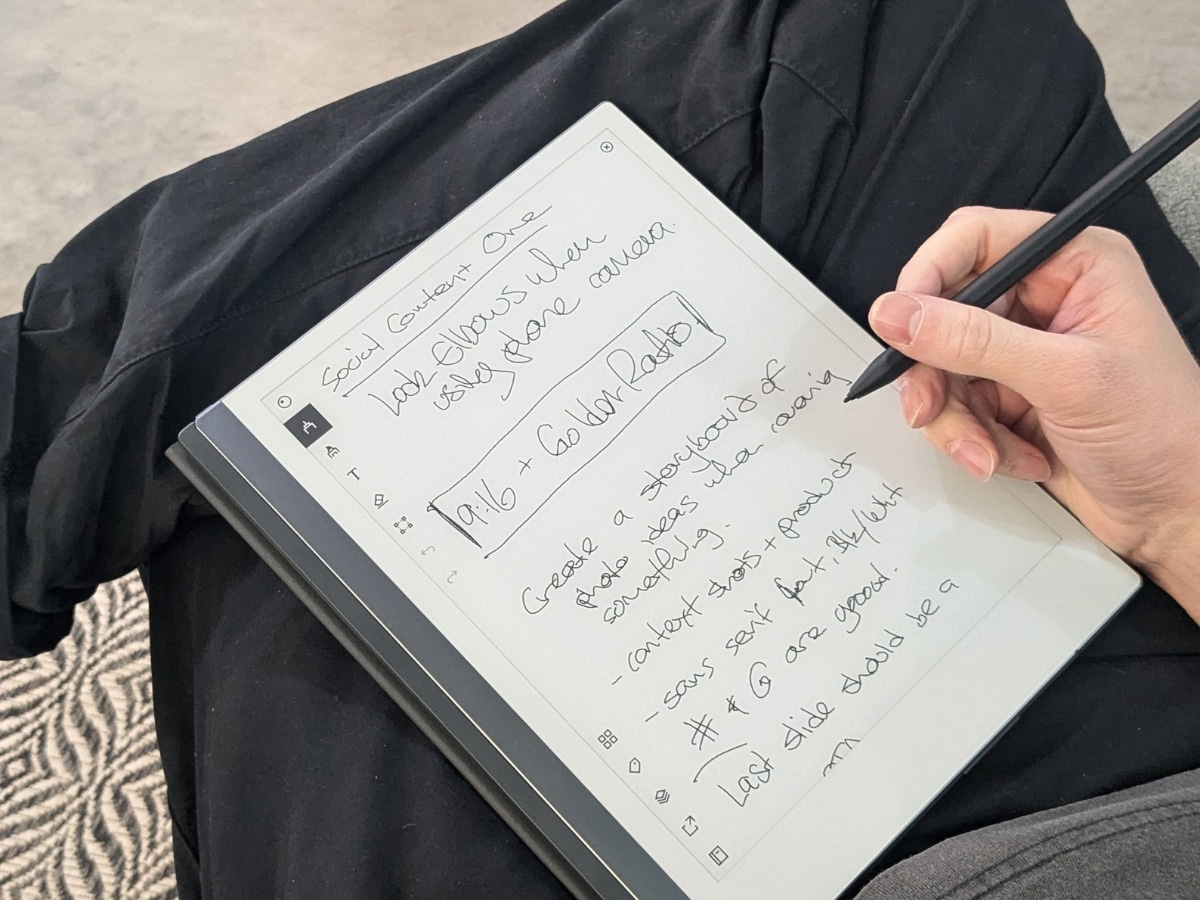 Social Content One
Lock Elbows when
using phone camera.
9:16 + Golden Ratio!
Create a storyboard of
photo ideas when
something.
- context shots + product
- sans serif font, Blk/Wht
# & @ are good.
Last slide should be a
T